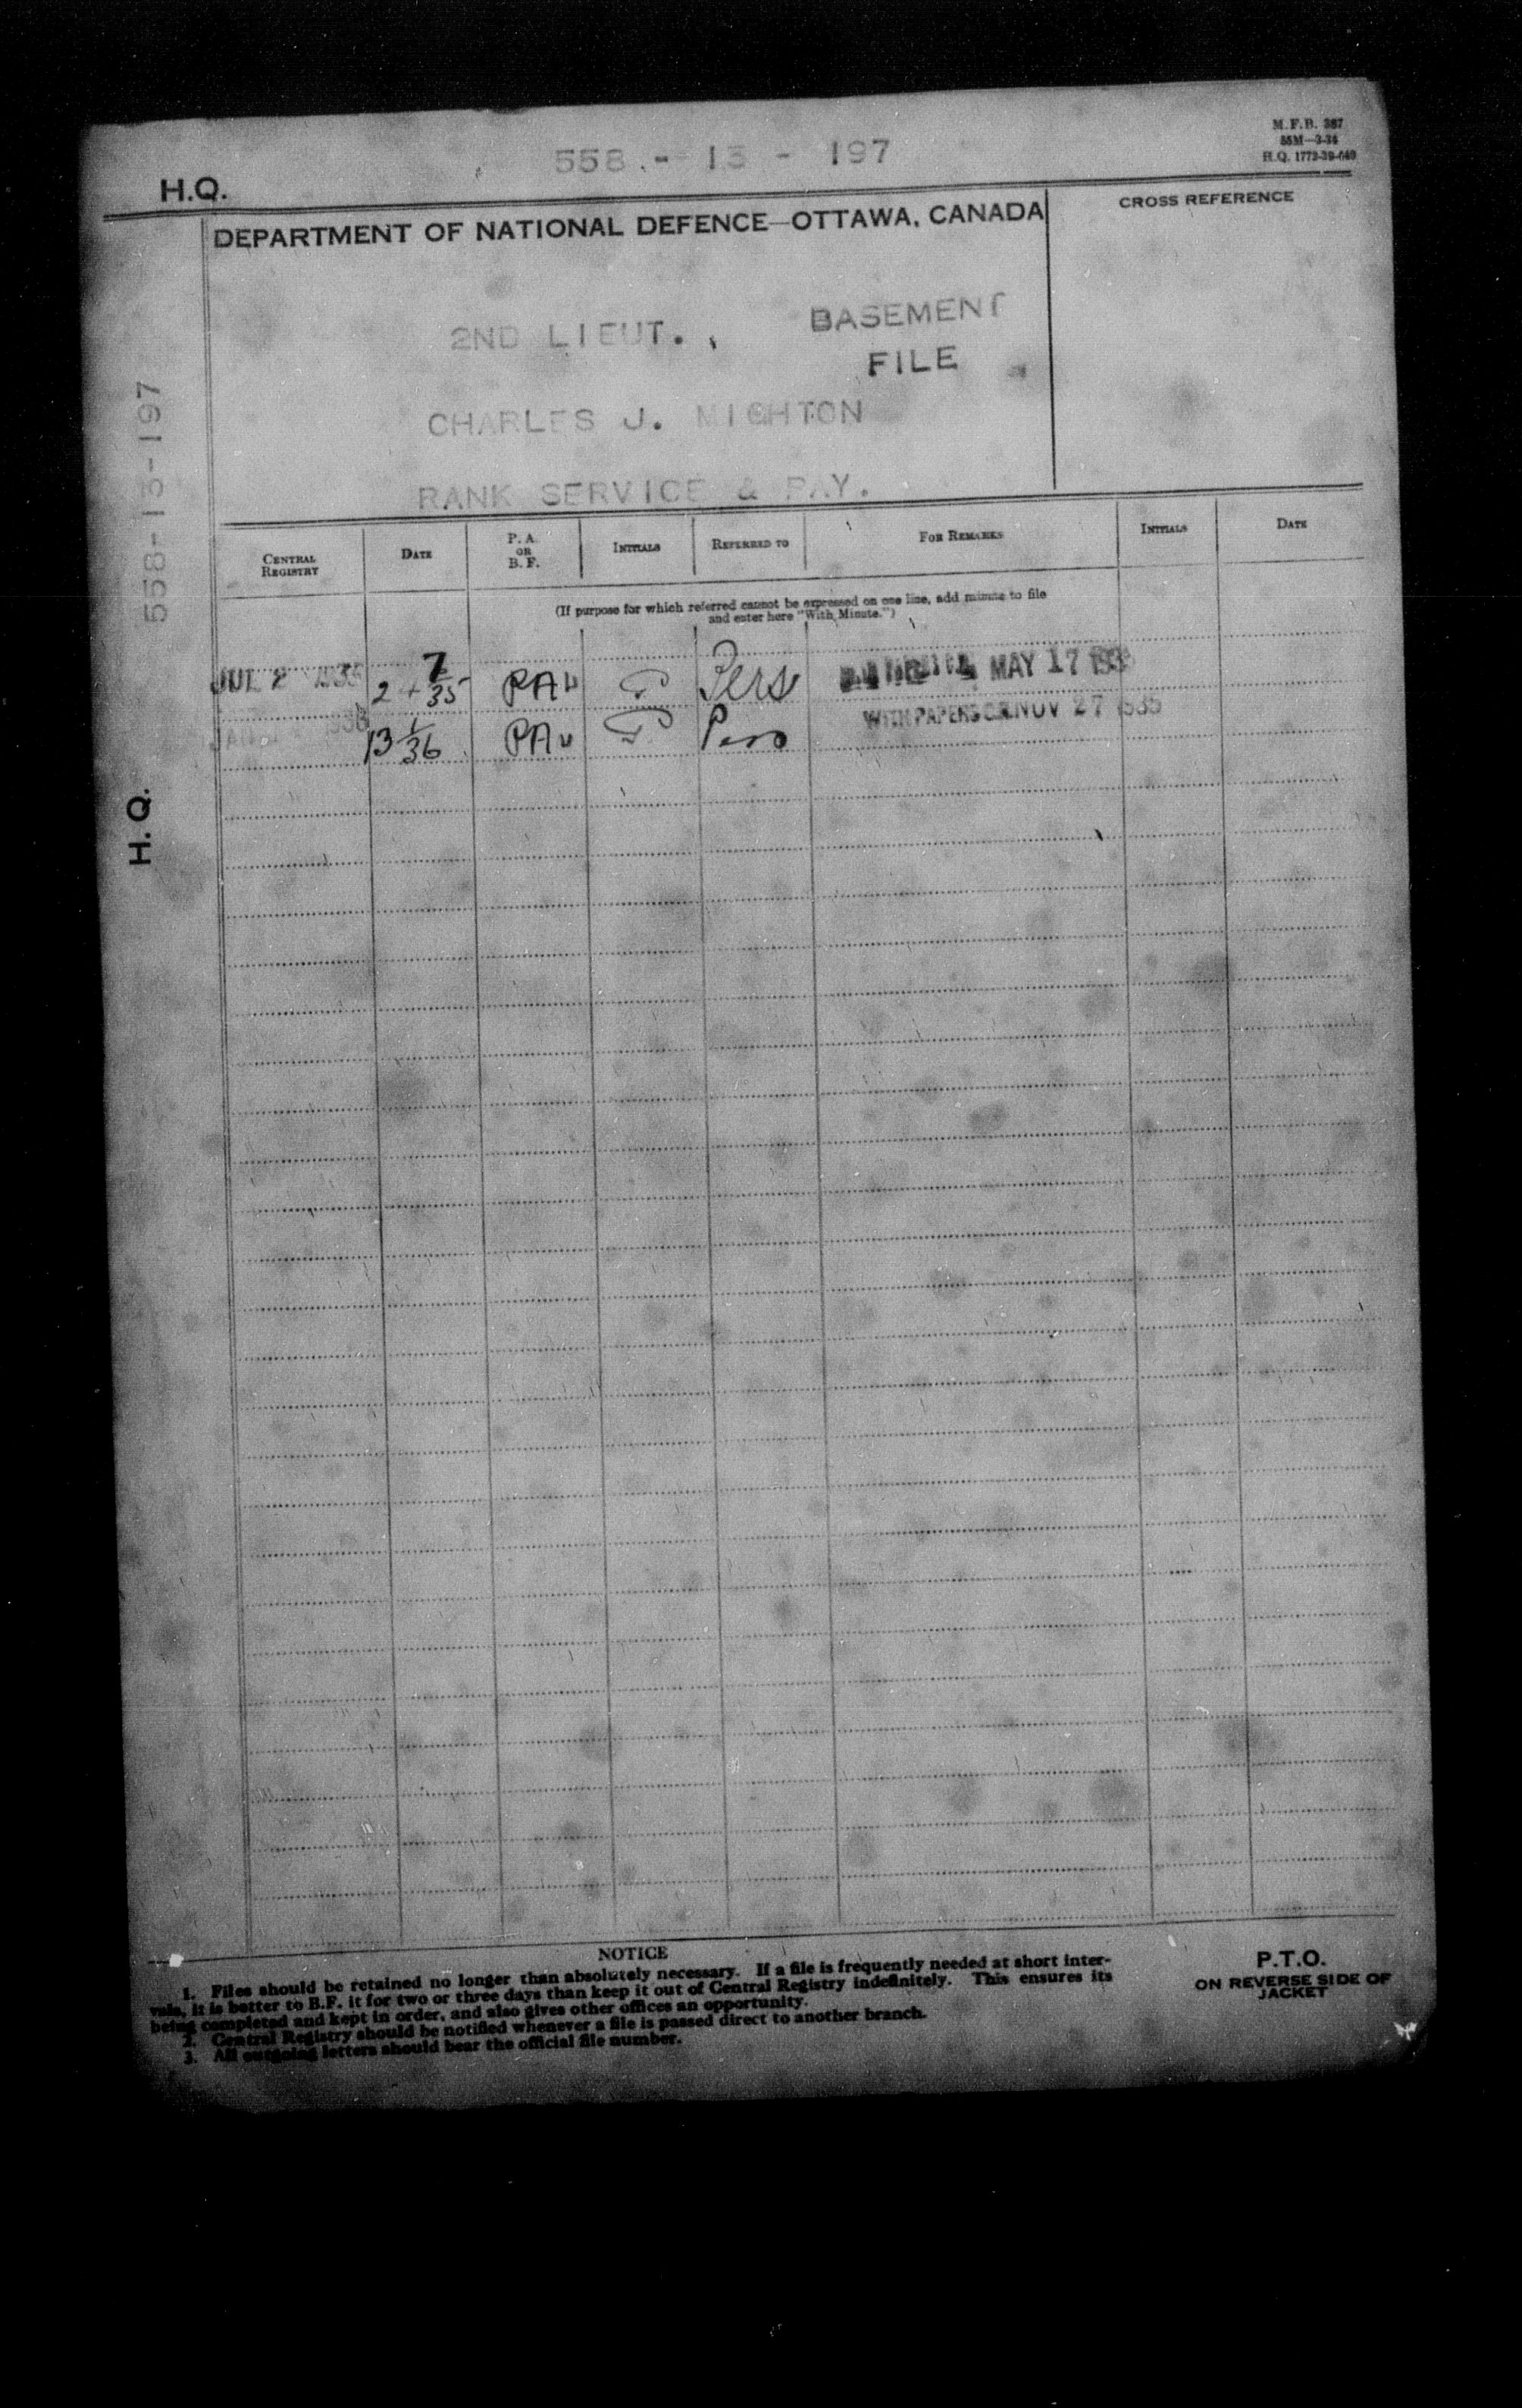 M.F.B. 367
55M—3-34
H.Q. 1772-39-649
558 - 13 - 197
H.Q.
DEPARTMENT OF NATIONAL DEFENCE—OTTAWA, CANADA
CROSS REFERENCE
2ND LIEUT.,
BASEMENT
FILE
CHARLES J. MIGHTON
RANK SERVICE & PAY.
558-13-197
H. Q.
CENTRAL REGISTRY
DATE
P. A. OR B. F.
INITIALS
REFERRED TO
FOR REMARKS
INITIALS
DATE
(If purpose for which referred cannot be expressed on one line, add minute to file
and enter here "With Minute.")
JUL 2 1935 2 7/35 PA Pers MAY 17 193
13 1/36 PA Pers WITH PAPERS C.R. NOV 27 1935
NOTICE
1. Files should be retained no longer than absolutely necessary. If a file is frequently needed at short inter-
vals, it is better to B.F. it for two or three days than keep it out of Central Registry indefinitely. This ensures its
being completed and kept in order, and also gives other offices an opportunity.
2. Central Registry should be notified whenever a file is passed direct to another branch.
3. All outgoing letters should bear the official file number.
P.T.O.
ON REVERSE SIDE OF
JACKET